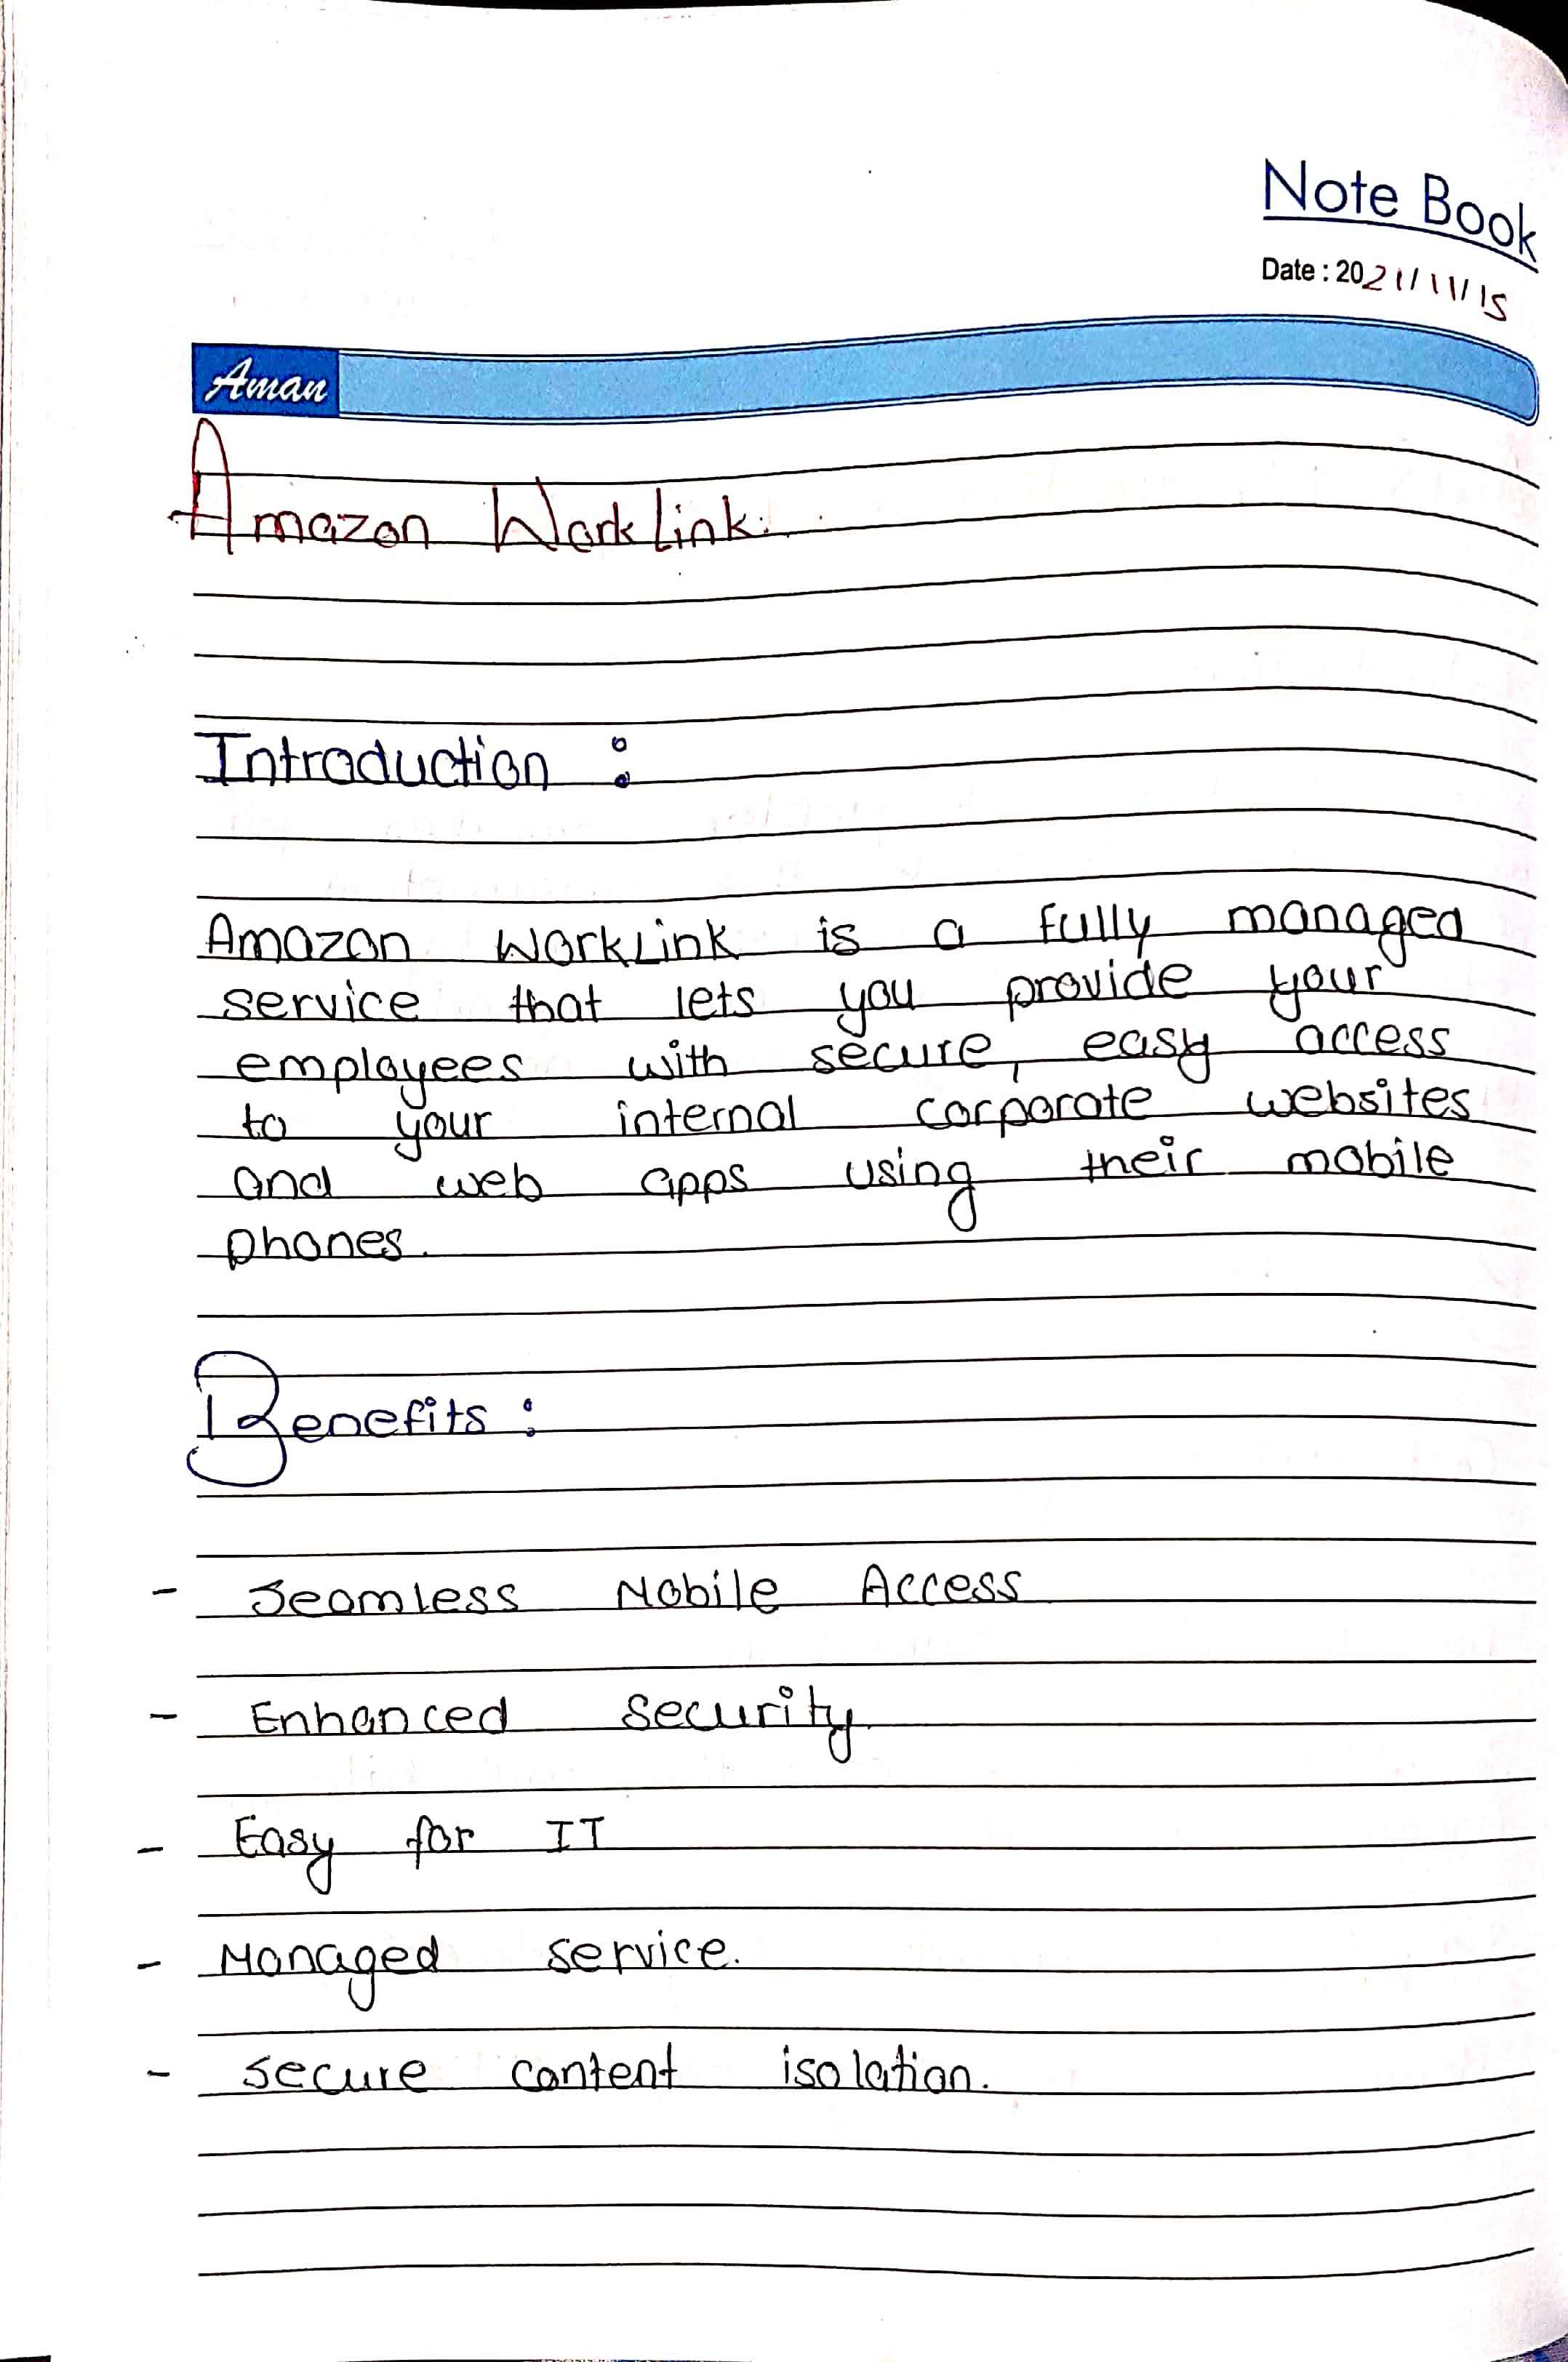 Note Book
Date : 2021/11/15
Aman
Amazon WorkLink.
Introduction :
Amazon WorkLink is a fully managed
service that lets you provide your
employees with secure, easy access
to your internal corporate websites
and web apps using their mobile
phones.
Benefits :
- Seamless Mobile Access
- Enhanced security.
- Easy for IT
- Managed service.
- secure content isolation.